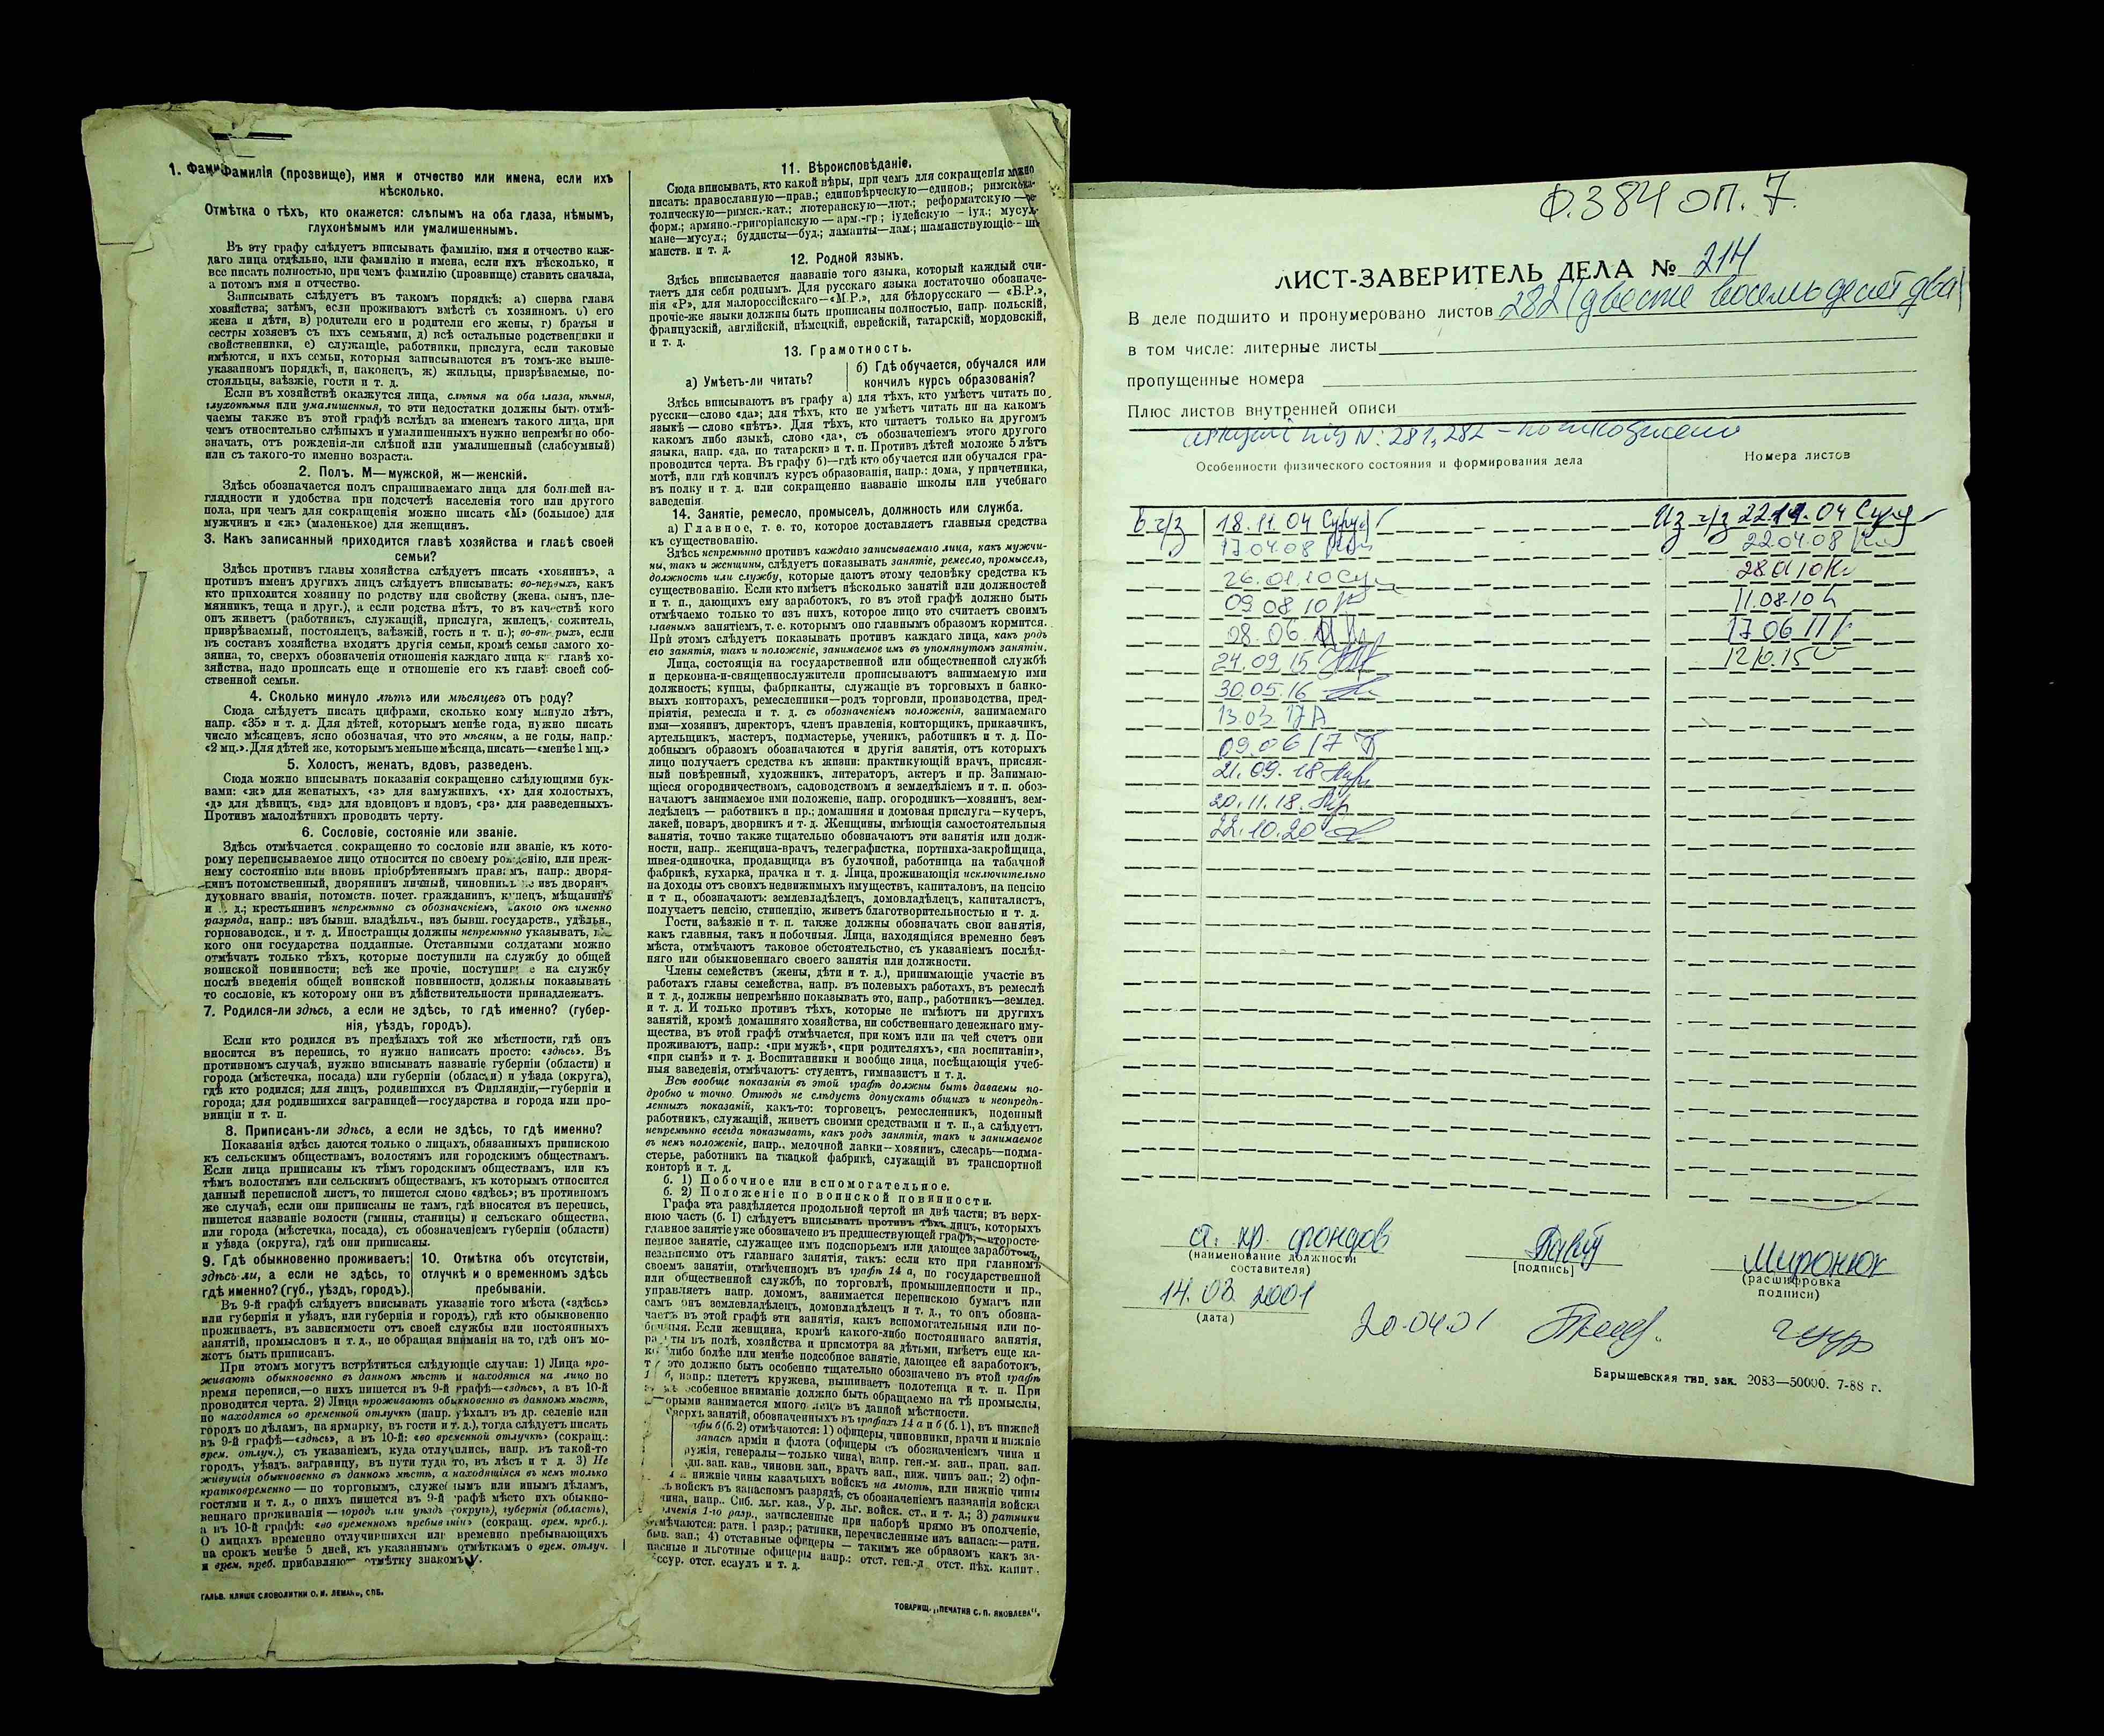 1. Фамилія (прозвище), имя и отчество или имена, если ихъ
нѣсколько.
Отмѣтка о тѣхъ, кто окажется: слѣпымъ на оба глаза, нѣмымъ,
глухонѣмымъ или умалишеннымъ.
Въ эту графу слѣдуетъ вписывать фамилію, имя и отчество каж-
даго лица отдѣльно, или фамилію и имена, если ихъ нѣсколько, и
все писать полностью, при чемъ фамилію (прозвище) ставить сначала,
а потомъ имя и отчество.
Записывать слѣдуетъ въ такомъ порядкѣ: а) сперва глава
хозяйства; затѣмъ, если проживаютъ вмѣстѣ съ хозяиномъ. б) его
жена и дѣти, в) родители его и родители его жены, г) братья и
сестры хозяевъ съ ихъ семьями, д) всѣ остальные родственники и
свойственники, е) служащіе, работники, прислуга, если таковые
имѣются, и ихъ семьи, которыя записываются въ томъ-же выше-
указанномъ порядкѣ, и, наконецъ, ж) жильцы, призрѣваемые, по-
стояльцы, заѣзжіе, гости и т. д.
Если въ хозяйствѣ окажутся лица, слѣпыя на оба глаза, нѣмыя,
глухонѣмыя или умалишенныя, то эти недостатки должны быть отмѣ-
чаемы также въ этой графѣ вслѣдъ за именемъ такого лица, при
чемъ относительно слѣпыхъ и умалишенныхъ нужно непремѣнно обо-
значать, отъ рожденія-ли слѣпой или умалишенный (слабоумный)
или съ такого-то именно возраста.
2. Полъ. М—мужской, ж—женскій.
Здѣсь обозначается полъ спрашиваемаго лица для большей на-
глядности и удобства при подсчетѣ населенія того или другого
пола, при чемъ для сокращенія можно писать «М» (большое) для
мужчинъ и «ж» (маленькое) для женщинъ.
3. Какъ записанный приходится главѣ хозяйства и главѣ своей
семьи?
Здѣсь противъ главы хозяйства слѣдуетъ писать «хозяинъ», а
противъ именъ другихъ лицъ слѣдуетъ вписывать: во-первыхъ, какъ
кто приходится хозяину по родству или свойству (жена, сынъ, пле-
мянникъ, теща и друг.), а если родства нѣтъ, то въ качествѣ кого
онъ живетъ (работникъ, служащій, прислуга, жилецъ, сожитель,
призрѣваемый, постоялецъ, заѣзжій, гость и т. п.); во-вторыхъ, если
въ составъ хозяйства входятъ другія семьи, кромѣ семьи самого хо-
зяина, то, сверхъ обозначенія отношенія каждаго лица къ главѣ хо-
зяйства, надо прописать еще и отношеніе его къ главѣ своей соб-
ственной семьи.
4. Сколько минуло лѣтъ или мѣсяцевъ отъ роду?
Сюда слѣдуетъ писать цифрами, сколько кому минуло лѣтъ,
напр. «35» и т. д. Для дѣтей, которымъ менѣе года, нужно писать
число мѣсяцевъ, ясно обозначая, что это мѣсяцы, а не годы, напр.:
«2 мц.». Для дѣтей же, которымъ меньше мѣсяца, писать—«менѣе 1 мц.»
5. Холостъ, женатъ, вдовъ, разведенъ.
Сюда можно вписывать показанія сокращенно слѣдующими бук-
вами: «ж» для женатыхъ, «з» для замужнихъ, «х» для холостыхъ,
«д» для дѣвицъ, «вд» для вдовцовъ и вдовъ, «рз» для разведенныхъ.
Противъ малолѣтнихъ проводить черту.
6. Сословіе, состояніе или званіе.
Здѣсь отмѣчается сокращенно то сословіе или званіе, къ кото-
рому переписываемое лицо относится по своему рожденію, или преж-
нему состоянію или вновь пріобрѣтеннымъ правамъ, напр.: дворя-
нинъ потомственный, дворянинъ личный, чиновникъ не изъ дворянъ,
духовнаго званія, потомств. почет. гражданинъ, купецъ, мѣщанинъ
и т. д.; крестьянинъ непремѣнно съ обозначеніемъ, какого онъ именно
разряда, напр.: изъ бывш. владѣльч., изъ бывш. государств., удѣльн.,
горнозаводск., и т. д. Иностранцы должны непремѣнно указывать, ка-
кого они государства подданные. Отставными солдатами можно
отмѣчать только тѣхъ, которые поступили на службу до общей
воинской повинности; всѣ же прочіе, поступившіе на службу
послѣ введенія общей воинской повинности, должны показывать
то сословіе, къ которому они въ дѣйствительности принадлежатъ.
7. Родился-ли здѣсь, а если не здѣсь, то гдѣ именно? (губер-
нія, уѣздъ, городъ).
Если кто родился въ предѣлахъ той же мѣстности, гдѣ онъ
вносится въ перепись, то нужно написать просто: «здѣсь». Въ
противномъ случаѣ, нужно вписывать названіе губерніи (области) и
города (мѣстечка, посада) или губерніи (области) и уѣзда (округа),
гдѣ кто родился; для лицъ, родившихся въ Финляндіи,—губерніи и
города; для родившихся заграницей—государства и города или про-
винціи и т. п.
8. Приписанъ-ли здѣсь, а если не здѣсь, то гдѣ именно?
Показанія здѣсь даются только о лицахъ, обязанныхъ припискою
къ сельскимъ обществамъ, волостямъ или городскимъ обществамъ.
Если лица приписаны къ тѣмъ городскимъ обществамъ, или къ
тѣмъ волостямъ или сельскимъ обществамъ, къ которымъ относится
данный переписной листъ, то пишется слово «здѣсь»; въ противномъ
же случаѣ, если они приписаны не тамъ, гдѣ вносятся въ перепись,
пишется названіе волости (гмины, станицы) и сельскаго общества,
или города (мѣстечка, посада), съ обозначеніемъ губерніи (области)
и уѣзда (округа), гдѣ они приписаны.
9. Гдѣ обыкновенно проживаетъ:
здѣсь-ли, а если не здѣсь, то
гдѣ именно? (губ., уѣздъ, городъ).
10. Отмѣтка объ отсутствіи,
отлучкѣ и о временномъ здѣсь
пребываніи.
Въ 9-й графѣ слѣдуетъ вписывать указаніе того мѣста («здѣсь»
или губернія и уѣздъ, или губернія и городъ), гдѣ кто обыкновенно
проживаетъ, въ зависимости отъ своей службы или постоянныхъ
занятій, промысловъ и т. д., не обращая вниманія на то, гдѣ онъ мо-
жетъ быть приписанъ.
При этомъ могутъ встрѣтиться слѣдующіе случаи: 1) Лица про-
живаютъ обыкновенно въ данномъ мѣстѣ и находятся на лицо во
время переписи,—о нихъ пишется въ 9-й графѣ—«здѣсь», а въ 10-й
проводится черта. 2) Лица проживаютъ обыкновенно въ данномъ мѣстѣ,
но находятся во временной отлучкѣ (напр. уѣхалъ въ др. селеніе или
городъ по дѣламъ, на ярмарку, въ гости и т. д.), тогда слѣдуетъ писать
въ 9-й графѣ—«здѣсь», а въ 10-й: «во временной отлучкѣ» (сокращ.:
врем. отлуч.), съ указаніемъ, куда отлучились, напр. въ такой-то
городъ, уѣздъ, заграницу, въ пути туда то, въ лѣсъ и т д. 3) Не
живущія обыкновенно въ данномъ мѣстѣ, а находящіяся въ немъ только
кратковременно — по торговымъ, служебнымъ или инымъ дѣламъ,
гостями и т. д., о нихъ пишется въ 9-й графѣ мѣсто ихъ обыкно-
веннаго проживанія — городъ или уѣздъ (округъ), губернія (область),
а въ 10-й графѣ: «во временномъ пребываніи» (сокращ. врем. преб.).
О лицахъ временно отлучившихся или временно пребывающихъ
на срокъ менѣе 5 дней, къ указаннымъ отмѣткамъ о врем. отлуч.
и врем. преб. прибавляютъ отмѣтку знакомъ V.
ГАЛЬВ. КЛИШЕ СЛОВОЛИТНИ О. И. ЛЕМАНЪ, СПБ.
11. Вѣроисповѣданіе.
Сюда вписывать, кто какой вѣры, при чемъ для сокращенія можно
писать: православную—прав.; единовѣрческую—единов.; римско-ка-
толическую—римск.-кат.; лютеранскую—лют.; реформатскую—ре-
форм.; армяно.-григоріанскую—арм.-гр; іудейскую – іуд.; мусуль-
мане—мусул.; буддисты—буд.; ламаиты—лам.; шаманствующіе—ша-
манств. и т. д.
12. Родной языкъ.
Здѣсь вписывается названіе того языка, который каждый счи-
таетъ для себя роднымъ. Для русскаго языка достаточно обозначе-
нія «Р», для малороссійскаго—«М.Р.», для бѣлорусскаго — «Б.Р.»,
прочіе-же языки должны быть прописаны полностью, напр. польскій,
французскій, англійскій, нѣмецкій, еврейскій, татарскій, мордовскій,
и т. д.
13. Грамотность.
а) Умѣетъ-ли читать?
б) Гдѣ обучается, обучался или
кончилъ курсъ образованія?
Здѣсь вписываютъ въ графу а) для тѣхъ, кто умѣетъ читать по
русски—слово «да»; для тѣхъ, кто не умѣетъ читать ни на какомъ
языкѣ—слово «нѣтъ». Для тѣхъ, кто читаетъ только на другомъ
какомъ либо языкѣ, слово «да», съ обозначеніемъ этого другого
языка, напр. «да, по татарски» и т. п. Противъ дѣтей моложе 5 лѣтъ
проводится черта. Въ графу б)—гдѣ кто обучается или обучался гра-
мотѣ, или гдѣ кончилъ курсъ образованія, напр.: дома, у причетника,
въ полку и т. д. или сокращенно названіе школы или учебнаго
заведенія.
14. Занятіе, ремесло, промыселъ, должность или служба.
а) Главное, т. е. то, которое доставляетъ главныя средства
къ существованію.
Здѣсь непремѣнно противъ каждаго записываемаго лица, какъ мужчи-
ны, такъ и женщины, слѣдуетъ показывать занятіе, ремесло, промыселъ,
должность или службу, которые даютъ этому человѣку средства къ
существованію. Если кто имѣетъ нѣсколько занятій или должностей
и т. п., дающихъ ему заработокъ, то въ этой графѣ должно быть
отмѣчаемо только то изъ нихъ, которое лицо это считаетъ своимъ
главнымъ занятіемъ, т. е. которымъ оно главнымъ образомъ кормится.
При этомъ слѣдуетъ показывать противъ каждаго лица, какъ родъ
его занятія, такъ и положеніе, занимаемое имъ въ упомянутомъ занятіи.
Лица, состоящія на государственной или общественной службѣ
и церковно-и-священнослужители прописываютъ занимаемую ими
должность; купцы, фабриканты, служащіе въ торговыхъ и банко-
выхъ конторахъ, ремесленники—родъ торговли, производства, пред-
пріятія, ремесла и т. д. съ обозначеніемъ положенія, занимаемаго
ими—хозяинъ, директоръ, членъ правленія, конторщикъ, приказчикъ,
артельщикъ, мастеръ, подмастерье, ученикъ, работникъ и т. д. По-
добнымъ образомъ обозначаются и другія занятія, отъ которыхъ
лицо получаетъ средства къ жизни: практикующій врачъ, присяж-
ный повѣренный, художникъ, литераторъ, актеръ и пр. Занимаю-
щіеся огородничествомъ, садоводствомъ и земледѣліемъ и т. п. обоз-
начаютъ занимаемое ими положеніе, напр. огородникъ—хозяинъ, зем-
ледѣлецъ — работникъ и пр.; домашняя и домовая прислуга—кучеръ,
лакей, поваръ, дворникъ и т. д. Женщины, имѣющія самостоятельныя
занятія, точно также тщательно обозначаютъ эти занятія или долж-
ности, напр.. женщина-врачъ, телеграфистка, портниха-закройщица,
швея-одиночка, продавщица въ булочной, работница на табачной
фабрикѣ, кухарка, прачка и т. д. Лица, проживающія исключительно
на доходы отъ своихъ недвижимыхъ имуществъ, капиталовъ, на пенсію
и т п., обозначаютъ: землевладѣлецъ, домовладѣлецъ, капиталистъ,
получаетъ пенсію, стипендію, живетъ благотворительностью и т. д.
Гости, заѣзжіе и т. п. также должны обозначать свои занятія,
какъ главныя, такъ и побочныя. Лица, находящіяся временно безъ
мѣста, отмѣчаютъ таковое обстоятельство, съ указаніемъ послѣд-
няго или обыкновеннаго своего занятія или должности.
Члены семействъ (жены, дѣти и т. д.), принимающіе участіе въ
работахъ главы семейства, напр. въ полевыхъ работахъ, въ ремеслѣ
и т. д., должны непремѣнно показывать это, напр., работникъ—землед.
и т. д. И только противъ тѣхъ, которые не имѣютъ ни другихъ
занятій, кромѣ домашняго хозяйства, ни собственнаго денежнаго иму-
щества, въ этой графѣ отмѣчается, при комъ или на чей счетъ они
проживаютъ, напр.: «при мужѣ», «при родителяхъ», «на воспитаніи»,
«при сынѣ» и т. д. Воспитанники и вообще лица, посѣщающія учеб-
ныя заведенія, отмѣчаютъ: студентъ, гимназистъ и т. д.
Всѣ вообще показанія въ этой графѣ должны быть даваемы по-
дробно и точно. Отнюдь не слѣдуетъ допускать общихъ и неопредѣ-
ленныхъ показаній, какъ-то: торговецъ, ремесленникъ, поденный
работникъ, служащій, живетъ своими средствами и т. п., а слѣдуетъ
непремѣнно всегда показывать, какъ родъ занятія, такъ и занимаемое
въ немъ положеніе, напр., мелочной лавки—хозяинъ, слесарь—подма-
стерье, работникъ на ткацкой фабрикѣ, служащій въ транспортной
конторѣ и т. д.
б. 1) Побочное или вспомогательное.
б. 2) Положеніе по воинской повинности.
Графа эта раздѣляется продольной чертой на двѣ части; въ верх-
нюю часть (б. 1) слѣдуетъ вписывать противъ тѣхъ лицъ, которыхъ
главное занятіе уже обозначено въ предшествующей графѣ, второсте-
пенное занятіе, служащее имъ подспорьемъ или дающее заработокъ,
независимо отъ главнаго занятія, такъ: если кто при главномъ
своемъ занятіи, отмѣченномъ въ графѣ 14 а, по государственной
или общественной службѣ, по торговлѣ, промышленности и пр.,
управляетъ напр. домомъ, занимается перепискою бумагъ или
самъ онъ землевладѣлецъ, домовладѣлецъ и т. д., то онъ обозна-
чаетъ въ этой графѣ эти занятія, какъ вспомогательныя или по-
бочныя. Если женщина, кромѣ какого-либо постояннаго занятія,
работы въ полѣ, хозяйства и присмотра за дѣтьми, имѣетъ еще ка-
кое либо болѣе или менѣе подсобное занятіе, дающее ей заработокъ,
это должно быть особенно тщательно обозначено въ этой графѣ
напр.: плететъ кружева, вышиваетъ полотенца и т. п. При
особенное вниманіе должно быть обращаемо на тѣ промыслы,
которыми занимается много лицъ въ данной мѣстности.
Сверхъ занятій, обозначенныхъ въ графахъ 14 а и б (б. 1), въ нижней
графы б (б.2) отмѣчаются: 1) офицеры, чиновники, врачи и нижніе
запаса арміи и флота (офицеры съ обозначеніемъ чина и
оружія, генералы—только чина), напр. ген.-м. зап., прап. зап.
зап. кав., чиновн. зап., врачъ зап., ниж. чинъ зап.; 2) офи-
нижніе чины казачьихъ войскъ на льготѣ, или нижніе чины
войскъ въ запасномъ разрядѣ, съ обозначеніемъ названія войска
чина, напр.. Спб. льг. каз., Ур. льг. войск. ст., и т. д.; 3) ратники
ополченія 1-го разр., зачисленные при наборѣ прямо въ ополченіе,
отмѣчаются: ратн. 1 разр.; ратники, перечисленные изъ запаса:—ратн.
быв. зап.; 4) отставные офицеры — такимъ же образомъ какъ за-
пасные и льготные офицеры напр.: отст. ген.-л., отст. пѣх. капит.,
ссур. отст. есаулъ и т. д.
ТОВАРИЩ. „ПЕЧАТНЯ С. П. ЯКОВЛЕВА“.
Ф.384 оп. 7.
ЛИСТ-ЗАВЕРИТЕЛЬ ДЕЛА № 214
В деле подшито и пронумеровано листов 282 (двести восемьдесят два)
в том числе: литерные листы
пропущенные номера
Плюс листов внутренней описи
аркуші під N: 281, 282 - пошкоджено
Особенности физического состояния и формирования дела
Номера листов
В ч/з 18.11.04 Из ч/з 22.11.04
17.04.08 22.04.08
26.01.10 28.01.10
09.08.10 11.08.10
08.06.11 17.06.11
24.09.15 12.10.15
30.05.16
13.03.17
09.06.17
21.09.18
20.11.18
22.10.20
ст. хр. фондов
Миронюк
(наименование должности
составителя)
[подпись]
(расшифровка
подписи)
14.03.2001
(дата)
20.04.01
Барышевская тип. зак. 2083—50000. 7-88 г.